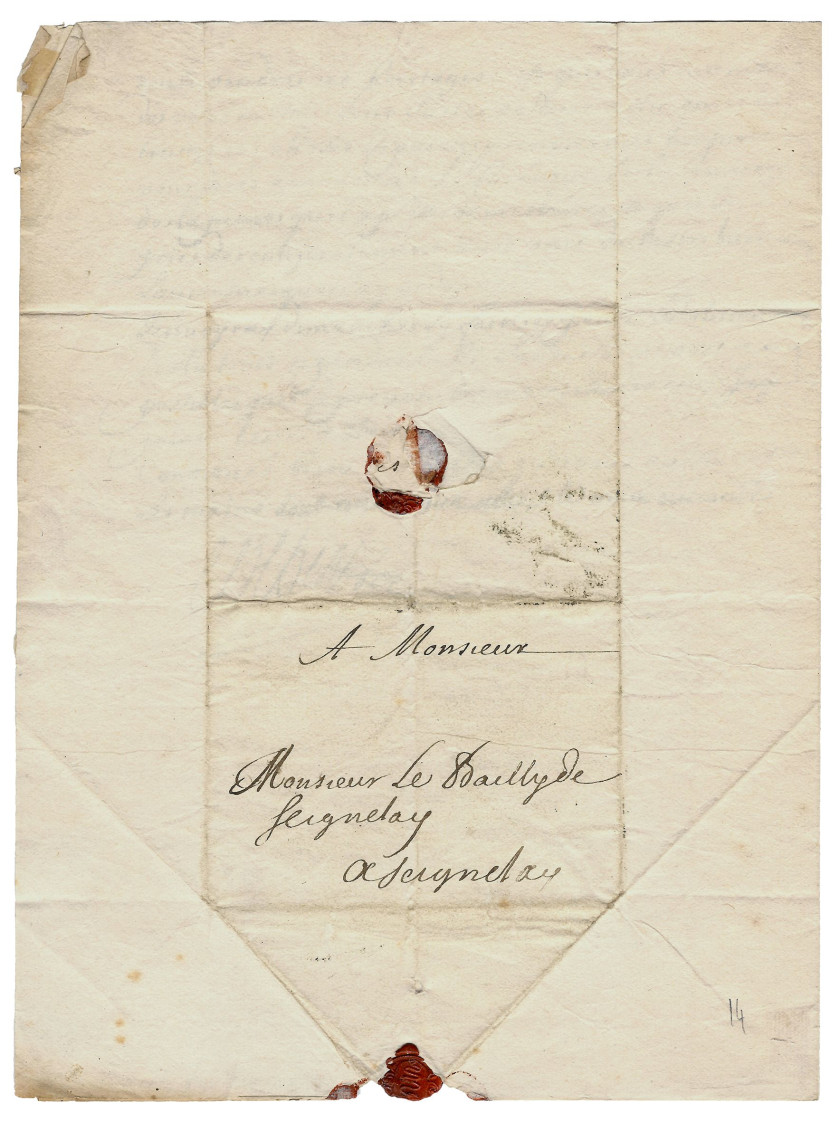 A Monsieur
Monsieur Le Bailly de
Seignelay
A Seignelay
14